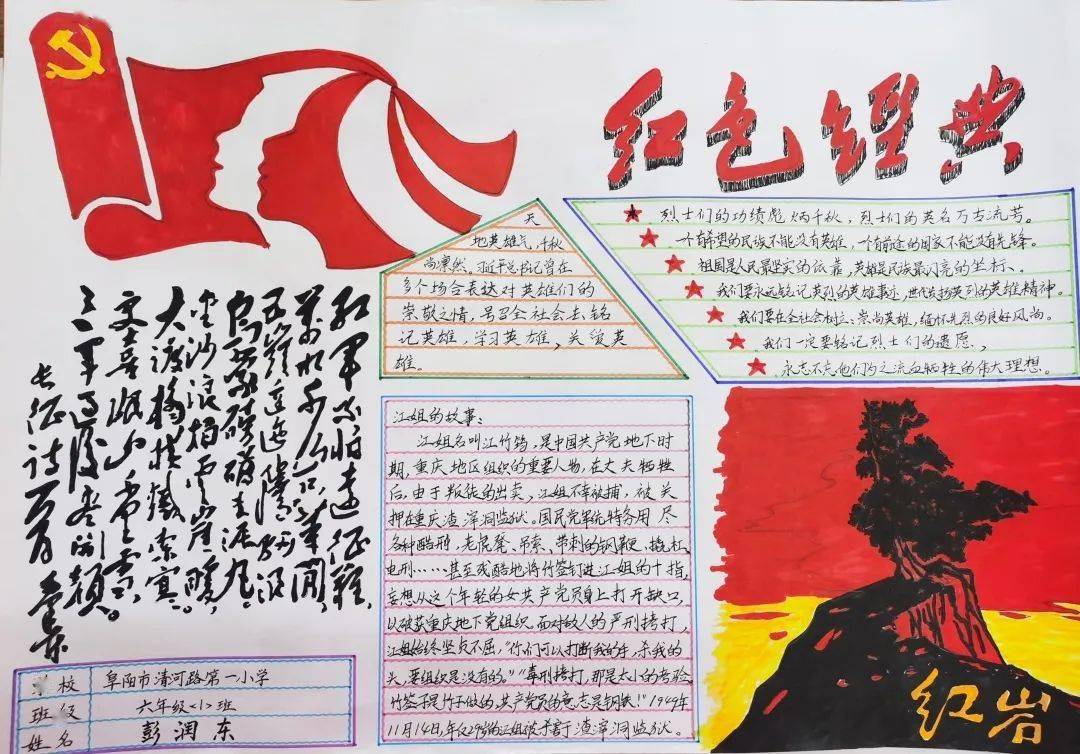 红色经典
天
地英雄气,千秋
尚凛然。习近平总书记曾在
多个场合表达对英雄们的
崇敬之情,号召全社会去铭
记英雄,学习英雄、关爱英
雄。
烈士们的功绩彪炳千秋,烈士们的英名万古流芳。
一个有希望的民族不能没有英雄,一个有前途的国家不能没有先锋。
祖国是人民最坚实的依靠,英雄是民族最闪亮的坐标、
我们要永远铭记英烈的英雄事迹,世代发扬英烈的英雄精神。
我们要在全社会树立崇尚英雄,缅怀先烈的良好风尚。
我们一定要铭记烈士们的遗愿、
永志不忘他们为之流血牺牲的伟大理想。
红军不怕远征难,
万水千山只等闲,
五岭逶迤腾细浪
乌蒙磅礴走泥丸。
金沙浪拍云崖暖,
大渡桥横铁索寒。
更喜岷山千里雪,
三军过后尽开颜。
长征诗一首
江姐的故事:
江姐名叫江竹筠,是中国共产党地下时
期,重庆地区组织的重要人物,在丈夫牺牲
后,由于叛徒的出卖,江姐不幸被捕,被关
押在重庆渣滓洞监狱。国民党军统特务用尽
各种酷刑,老虎凳、吊索、带刺的钢鞭、撬杠、
电刑……甚至残酷地将竹签钉进江姐的十指,
妄想从这个年轻的女共产党员身上打开缺口,
以破获重庆地下党组织。面对敌人的严刑拷打,
江姐始终坚贞不屈,"你们可以打断我的手,杀我的
头,要组织是没有的。""毒刑拷打,那是太小的考验,
竹签子是竹子做的,共产党员的意志是钢铁!"1949年
11月14日,年仅29岁的江姐被杀害于渣滓洞监狱。
校 阜阳市清河路第一小学
班级 六年级<1>班
姓名 彭润东
红岩